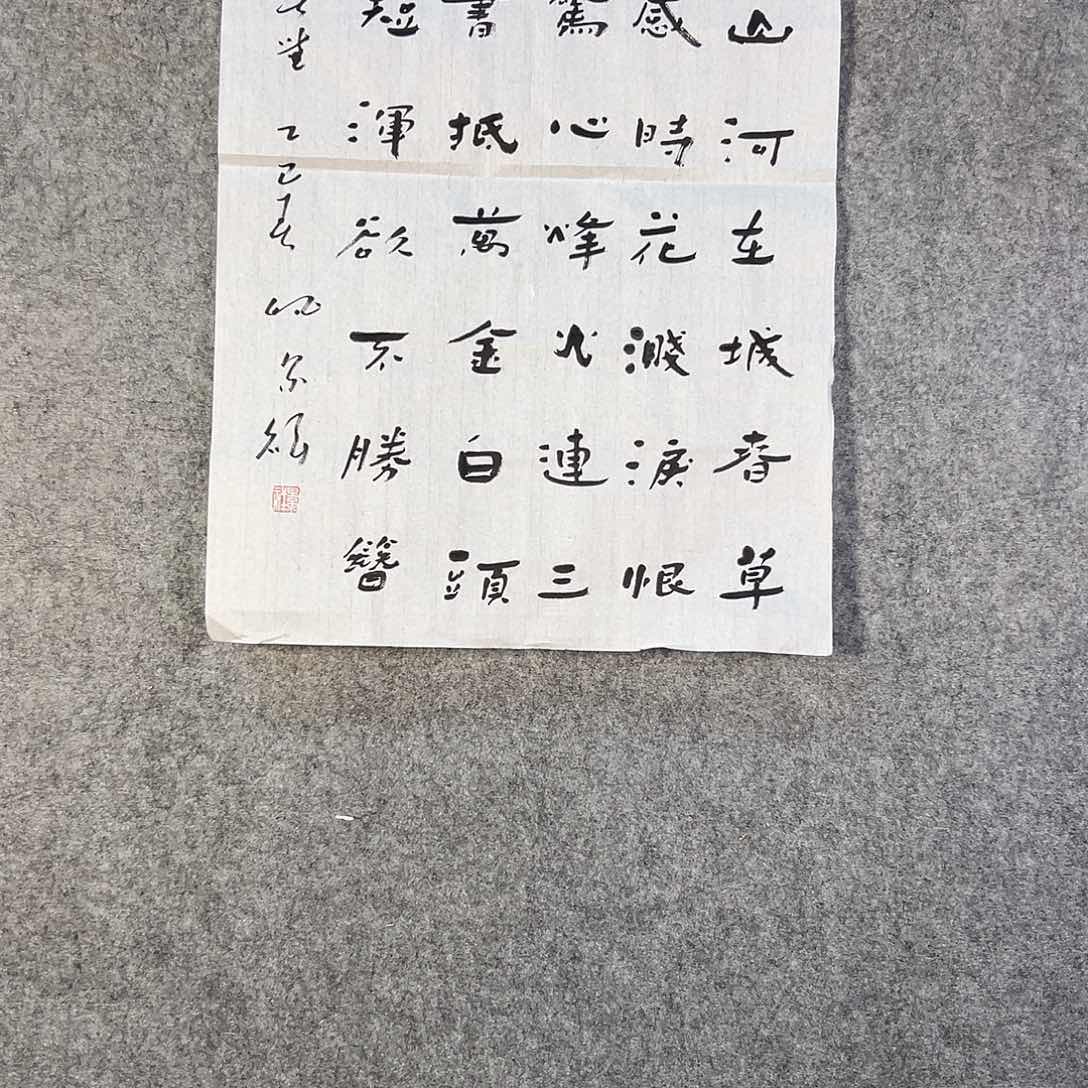 山河在城春草
感時花濺淚恨
驚心烽火連三
書抵萬金白頭
短渾欲不勝簪
望 乙巳春